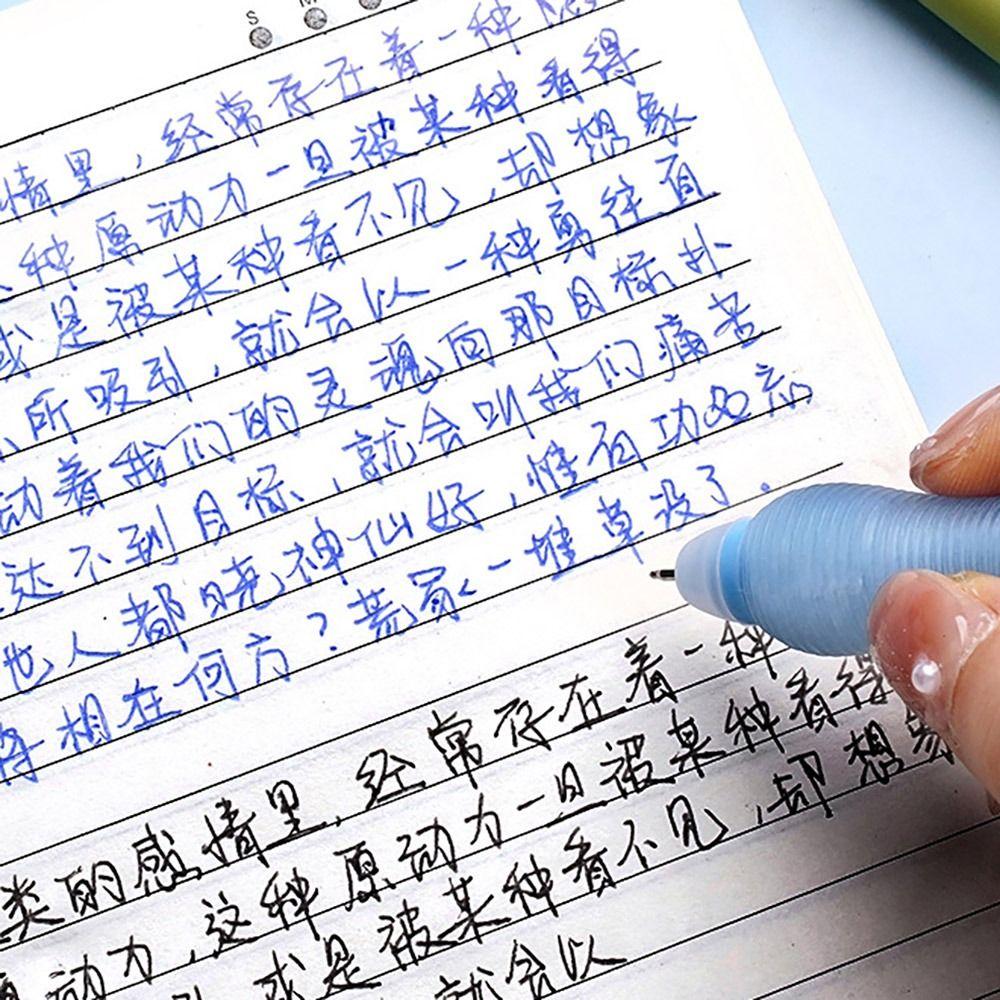 S M
情里，经常存在着一种
种原动力一旦被某种看得
或是被某种看不见，却想象
所吸引，就会以一种勇往直
动着我们的灵魂向那目标扑
达不到目标，就会叫我们痛苦
也人都晓神仙好，惟有功名忘
将相在何方？荒冢一堆草没了。
经常存在着一种
类的感情里，
动力，这种原动力一旦被某种看得
或是被某种看不见，却想象
就会以